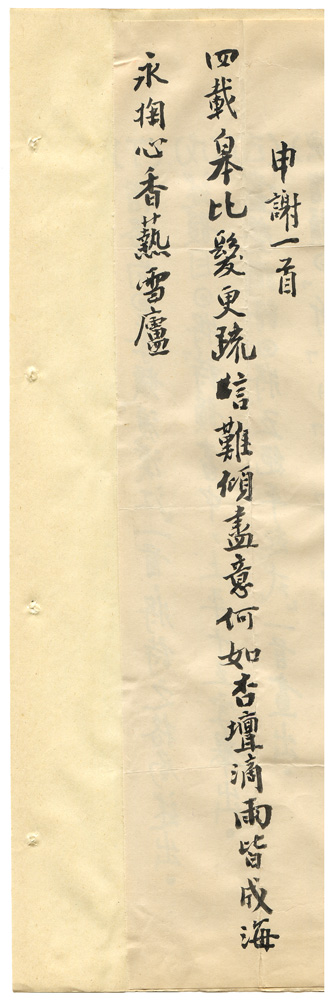 申謝一首
四載皋比髮更疏信難傾盡意何如杏壇滴雨皆成海
永掬心香爇雪廬